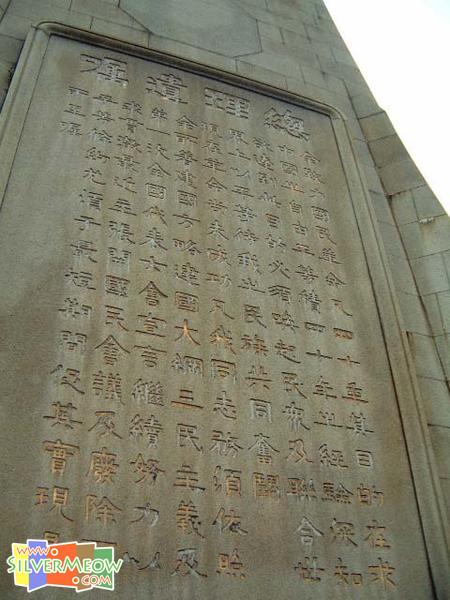 總理遺囑
余致力國民革命凡四十年其目的在求
中國之自由平等積四十年之經驗深知
欲達到此目的必須喚起民眾及聯合世
界上以平等待我之民族共同奮鬥
現在革命尚未成功凡我同志務須依照
余所著建國方略建國大綱三民主義及
第一次全國代表大會宣言繼續努力以
求貫徹最近主張開國民會議及廢除
平等條約尤須于最短期間促其實現
所至囑
www.
SILVERMEOW
.com